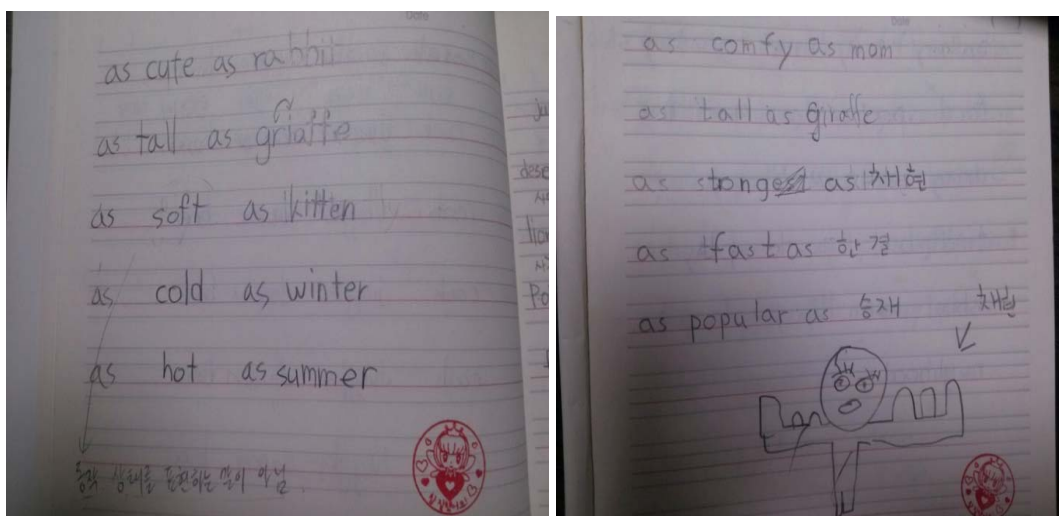 as cute as rabbit
as tall as griaffe
as soft as kitten
as cold as winter
as hot as summer
동작 상태를 표현하는 말이 아님.
as comfy as mom
as tall as giraffe
as strong as 채현
as fast as 한결
as popular as 승재
채현